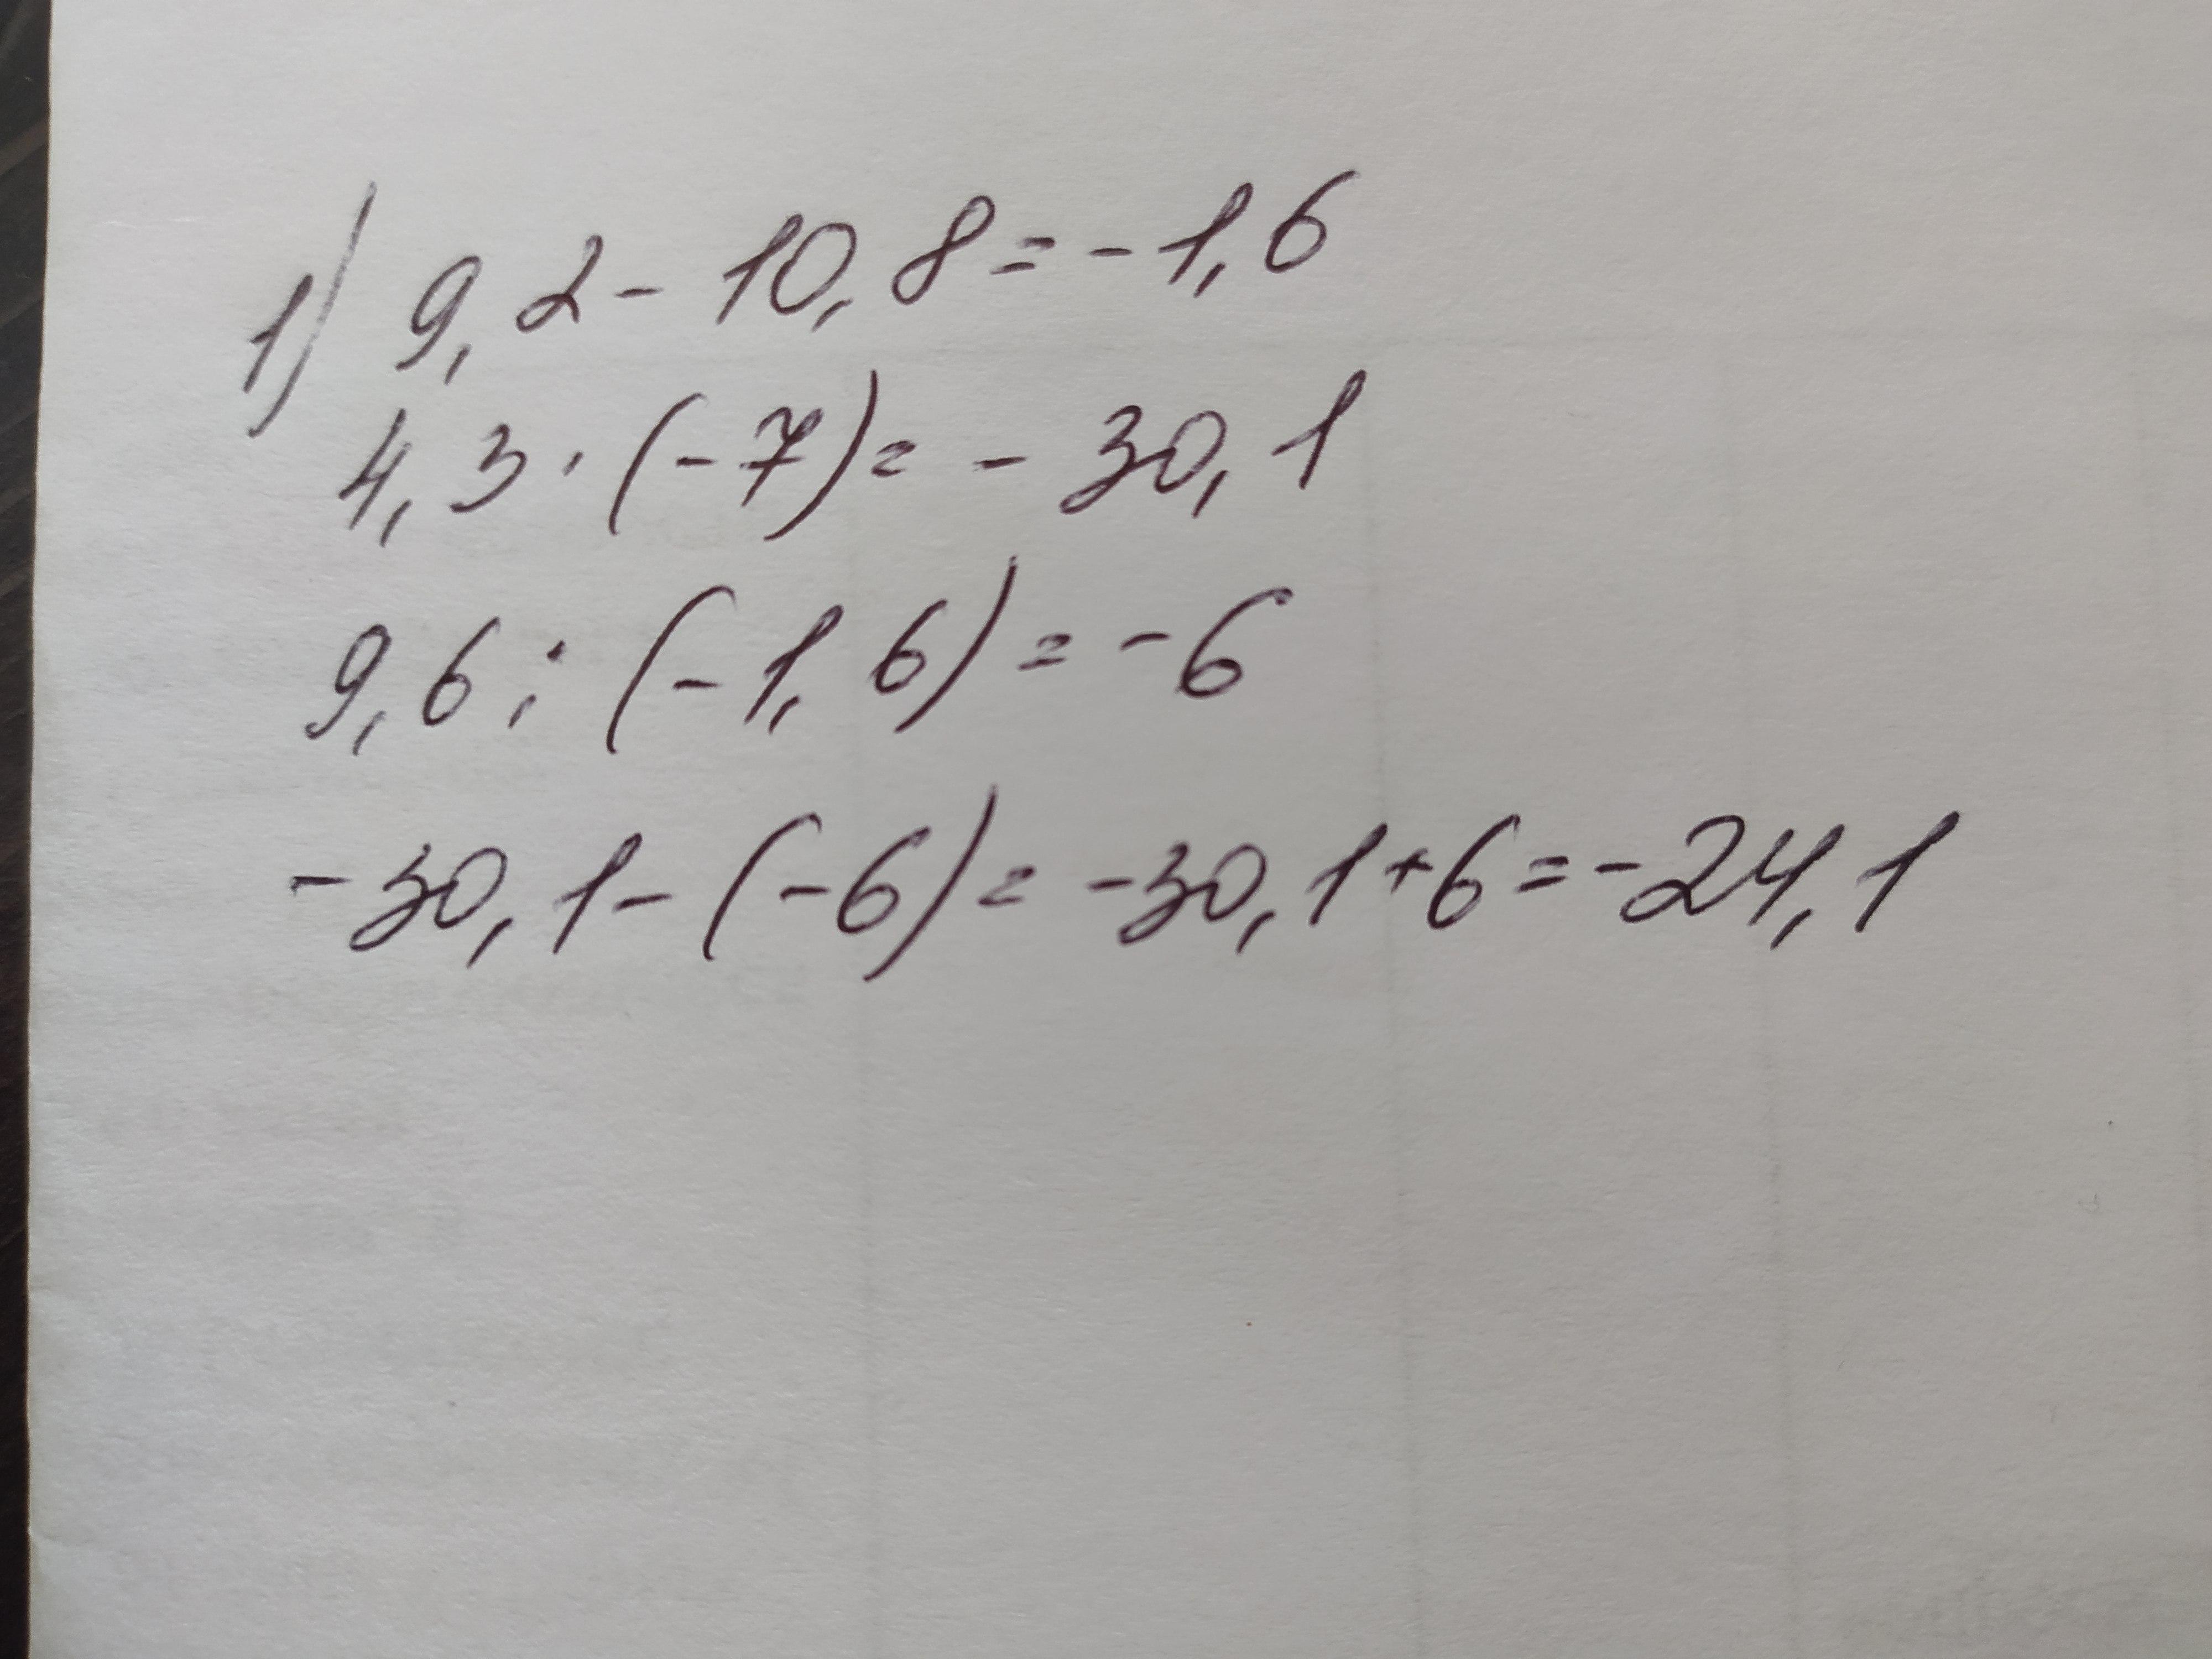 1) 9,2 - 10,8 = - 1,6
4,3 · (-7) = - 30,1
9,6 : (-1,6) = - 6
-30,1 - (-6) = -30,1 + 6 = -24,1